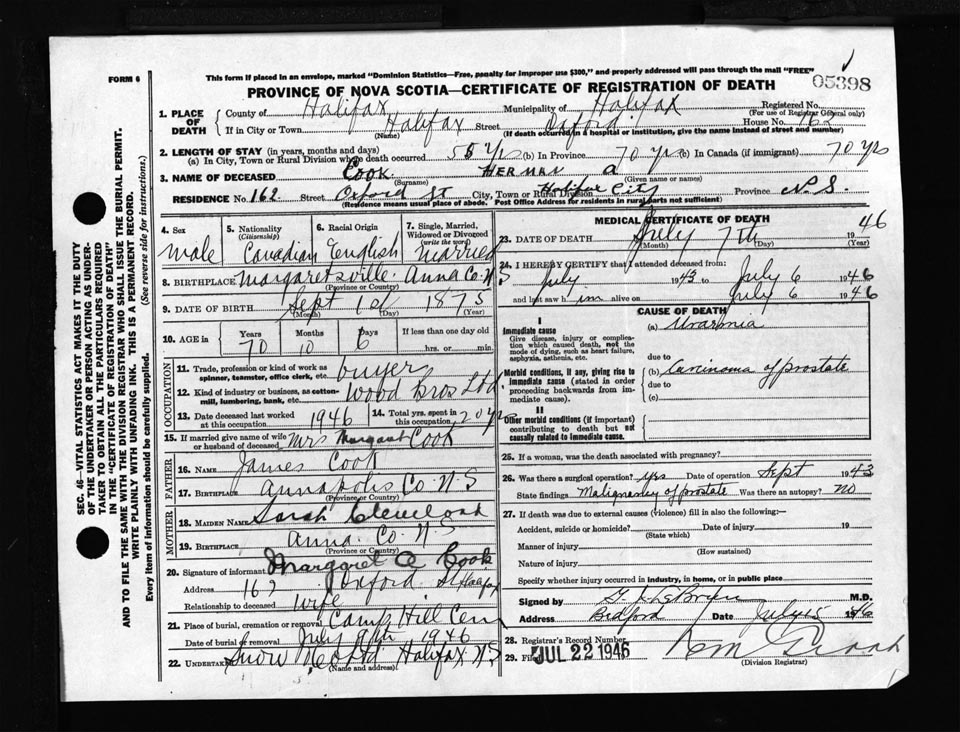 FORM 6
This form if placed in an envelope, marked "Dominion Statistics—Free, penalty for improper use $300," and properly addressed will pass through the mail "FREE"
PROVINCE OF NOVA SCOTIA—CERTIFICATE OF REGISTRATION OF DEATH
05398
1. PLACE OF DEATH
County of Halifax Municipality of Halifax Registered No.
(For use of Registrar General only)
If in City or Town Halifax Street Oxford House No. 162
(Name) (If death occurred in a hospital or institution, give the name instead of street and number)
2. LENGTH OF STAY (in years, months and days)
(a) In City, Town or Rural Division where death occurred 55 yrs (b) In Province 70 yrs (c) In Canada (if immigrant) 70 yrs
3. NAME OF DECEASED Cook Herman A
(Surname) (Given name or names)
RESIDENCE No. 162 Street Oxford St City, Town or Rural Division Halifax City Province N.S.
(Residence means usual place of abode. Post Office Address for residents in rural parts not sufficient)
4. Sex Male
5. Nationality (Citizenship) Canadian
6. Racial Origin English
7. Single, Married, Widowed or Divorced (write the word) Married
8. BIRTHPLACE Margaretsville Anna Co. N S
(Province or Country)
9. DATE OF BIRTH Sept 1st 1875
(Month) (Day) (Year)
10. AGE in Years Months Days If less than one day old
70 10 6 hrs. or min.
OCCUPATION
11. Trade, profession or kind of work as spinner, teamster, office clerk, etc. buyer
12. Kind of industry or business, as cotton-mill, lumbering, bank, etc. Wood Bros Ltd
13. Date deceased last worked at this occupation 1946
14. Total yrs. spent in this occupation 20 yrs
15. If married give name of wife or husband of deceased Mrs Margaret Cook
FATHER
16. NAME James Cook
17. BIRTHPLACE Annapolis Co. N.S
(Province or Country)
MOTHER
18. MAIDEN NAME Sarah Cleveland
19. BIRTHPLACE Anna. Co. N.S
(Province or Country)
20. Signature of informant Margaret A Cook
Address 162 Oxford St Halifax
Relationship to deceased wife
21. Place of burial, cremation or removal Camp Hill Cem
Date of burial or removal July 9th 1946
22. UNDERTAKER Snow & Co Ltd Halifax N.S
(Name and address)
MEDICAL CERTIFICATE OF DEATH
23. DATE OF DEATH July 7th 1946
(Month) (Day) (Year)
24. I HEREBY CERTIFY that I attended deceased from:
July 1943 to July 6 1946
and last saw him alive on July 6 1946
CAUSE OF DEATH
I
Immediate cause
Give disease, injury or complication which caused death, not the mode of dying, such as heart failure, asphyxia, asthenia, etc.
(a) Uraemia
due to
Morbid conditions, if any, giving rise to immediate cause (stated in order proceeding backwards from immediate cause).
(b) Carcinoma of prostate
due to
(c)
II
Other morbid conditions (if important) contributing to death but not causally related to immediate cause.
25. If a woman, was the death associated with pregnancy?
26. Was there a surgical operation? yes Date of operation Sept 1943
State findings Malignancy of prostate Was there an autopsy? no
27. If death was due to external causes (violence) fill in also the following:—
Accident, suicide or homicide? Date of injury 19
(State which)
Manner of injury
(How sustained)
Nature of injury
Specify whether injury occurred in industry, in home, or in public place
Signed by M.D.
Address Bedford Date July 15 1946
28. Registrar's Record Number
29. Filed JUL 22 1946
(Division Registrar)
SEC. 46—VITAL STATISTICS ACT MAKES IT THE DUTY
OF THE UNDERTAKER OR PERSON ACTING AS UNDER-
TAKER TO OBTAIN ALL THE PARTICULARS REQUIRED
IN THE "CERTIFICATE OF REGISTRATION OF DEATH"
AND TO FILE THE SAME WITH THE DIVISION REGISTRAR WHO SHALL ISSUE THE BURIAL PERMIT.
WRITE PLAINLY WITH UNFADING INK. THIS IS A PERMANENT RECORD.
Every item of information should be carefully supplied. (See reverse side for instructions.)